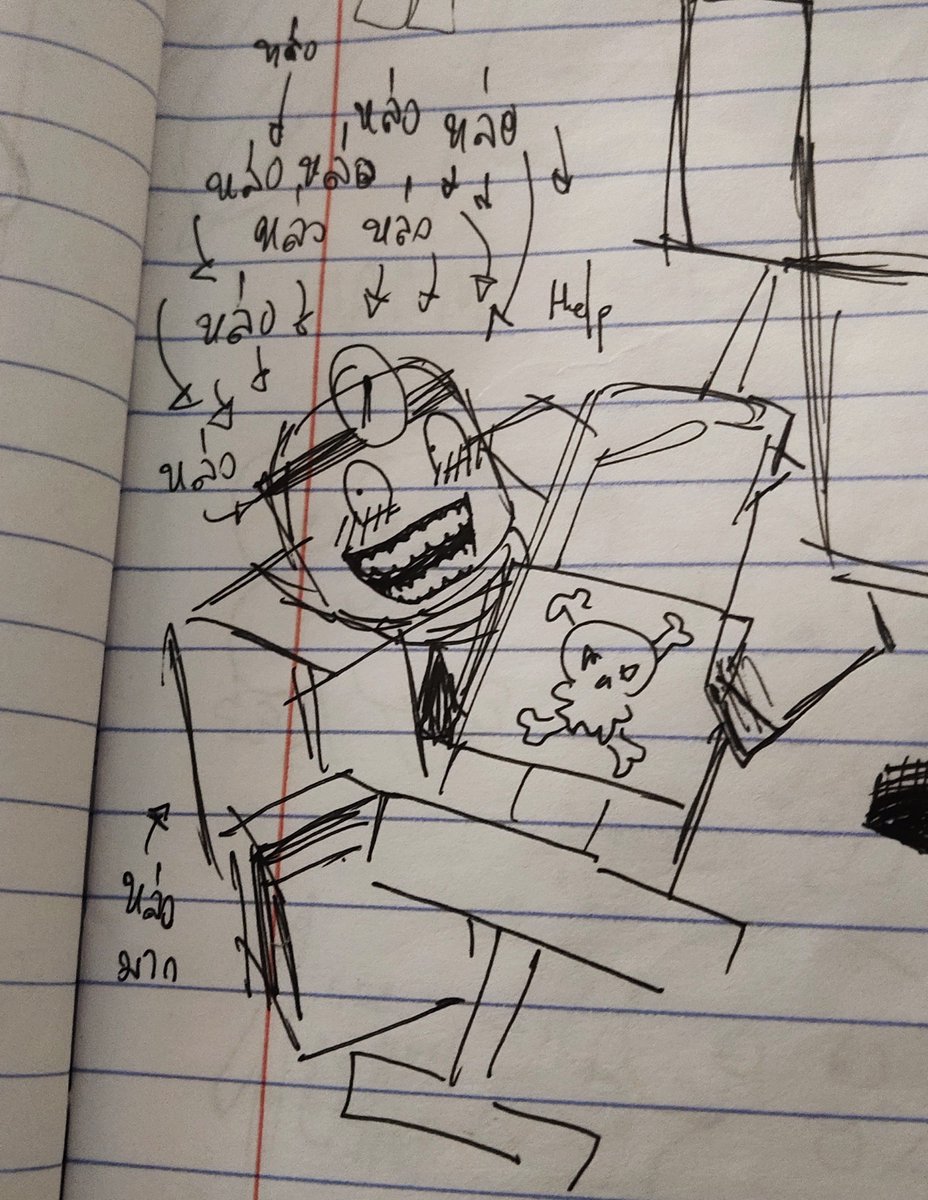 หล่อ
หล่อ หล่อ
หล่อ หล่อ
หล่อ หล่อ
หล่อ
Help
หล่อ
หล่อ
มาก